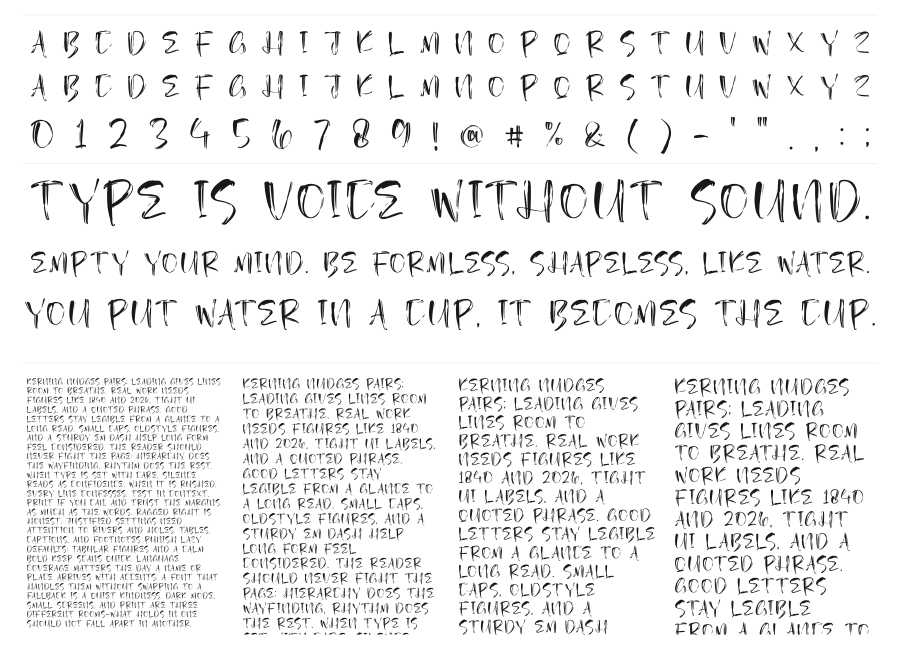 A B C D E F G H I J K L M N O P Q R S T U V W X Y Z
A B C D E F G H I J K L M N O P Q R S T U V W X Y Z
0 1 2 3 4 5 6 7 8 9 ! @ # % & ( ) - ' " . , : ;
TYPE IS VOICE WITHOUT SOUND.
EMPTY YOUR MIND. BE FORMLESS, SHAPELESS, LIKE WATER.
YOU PUT WATER IN A CUP, IT BECOMES THE CUP.
KERNING NUDGES PAIRS; LEADING GIVES LINES
ROOM TO BREATHE. REAL WORK NEEDS
FIGURES LIKE 1840 AND 2026, TIGHT UI
LABELS, AND A QUOTED PHRASE. GOOD
LETTERS STAY LEGIBLE FROM A GLANCE TO A
LONG READ. SMALL CAPS, OLDSTYLE FIGURES,
AND A STURDY EM DASH HELP LONG FORM
FEEL CONSIDERED. THE READER SHOULD
NEVER FIGHT THE PAGE: HIERARCHY DOES
THE WAYFINDING, RHYTHM DOES THE REST.
WHEN TYPE IS SET WITH CARE, SILENCE
READS AS CONFIDENCE. WHEN IT IS RUSHED,
EVERY LINE CONFESSES. TEST IN CONTEXT.
PRINT IF YOU CAN AND TRUST THE MARGINS
AS MUCH AS THE WORDS. RAGGED RIGHT IS
HONEST; JUSTIFIED SETTINGS NEED
ATTENTION TO RIVERS AND HOLES. TABLES,
CAPTIONS, AND FOOTNOTES PUNISH LAZY
DEFAULTS. TABULAR FIGURES AND A CALM
BOLD KEEP SCANS QUICK. LANGUAGE
COVERAGE MATTERS THE DAY A NAME OR
PLACE ARRIVES WITH ACCENTS; A FONT THAT
HANDLES THEM WITHOUT SWAPPING TO A
FALLBACK IS A QUIET KINDNESS. DARK MODE,
SMALL SCREENS, AND PRINT ARE THREE
DIFFERENT ROOMS—WHAT HOLDS IN ONE
SHOULD NOT FALL APART IN ANOTHER.
KERNING NUDGES PAIRS;
LEADING GIVES LINES ROOM
TO BREATHE. REAL WORK
NEEDS FIGURES LIKE 1840
AND 2026, TIGHT UI LABELS,
AND A QUOTED PHRASE.
GOOD LETTERS STAY
LEGIBLE FROM A GLANCE TO
A LONG READ. SMALL CAPS,
OLDSTYLE FIGURES, AND A
STURDY EM DASH HELP
LONG FORM FEEL
CONSIDERED. THE READER
SHOULD NEVER FIGHT THE
PAGE: HIERARCHY DOES THE
WAYFINDING, RHYTHM DOES
THE REST. WHEN TYPE IS
SET WITH CARE, SILENCE
KERNING NUDGES
PAIRS; LEADING GIVES
LINES ROOM TO
BREATHE. REAL WORK
NEEDS FIGURES LIKE
1840 AND 2026, TIGHT
UI LABELS, AND A
QUOTED PHRASE. GOOD
LETTERS STAY LEGIBLE
FROM A GLANCE TO A
LONG READ. SMALL
CAPS, OLDSTYLE
FIGURES, AND A
STURDY EM DASH
KERNING NUDGES
PAIRS; LEADING
GIVES LINES ROOM
TO BREATHE. REAL
WORK NEEDS
FIGURES LIKE 1840
AND 2026, TIGHT
UI LABELS, AND A
QUOTED PHRASE.
GOOD LETTERS
STAY LEGIBLE
FROM A GLANCE TO